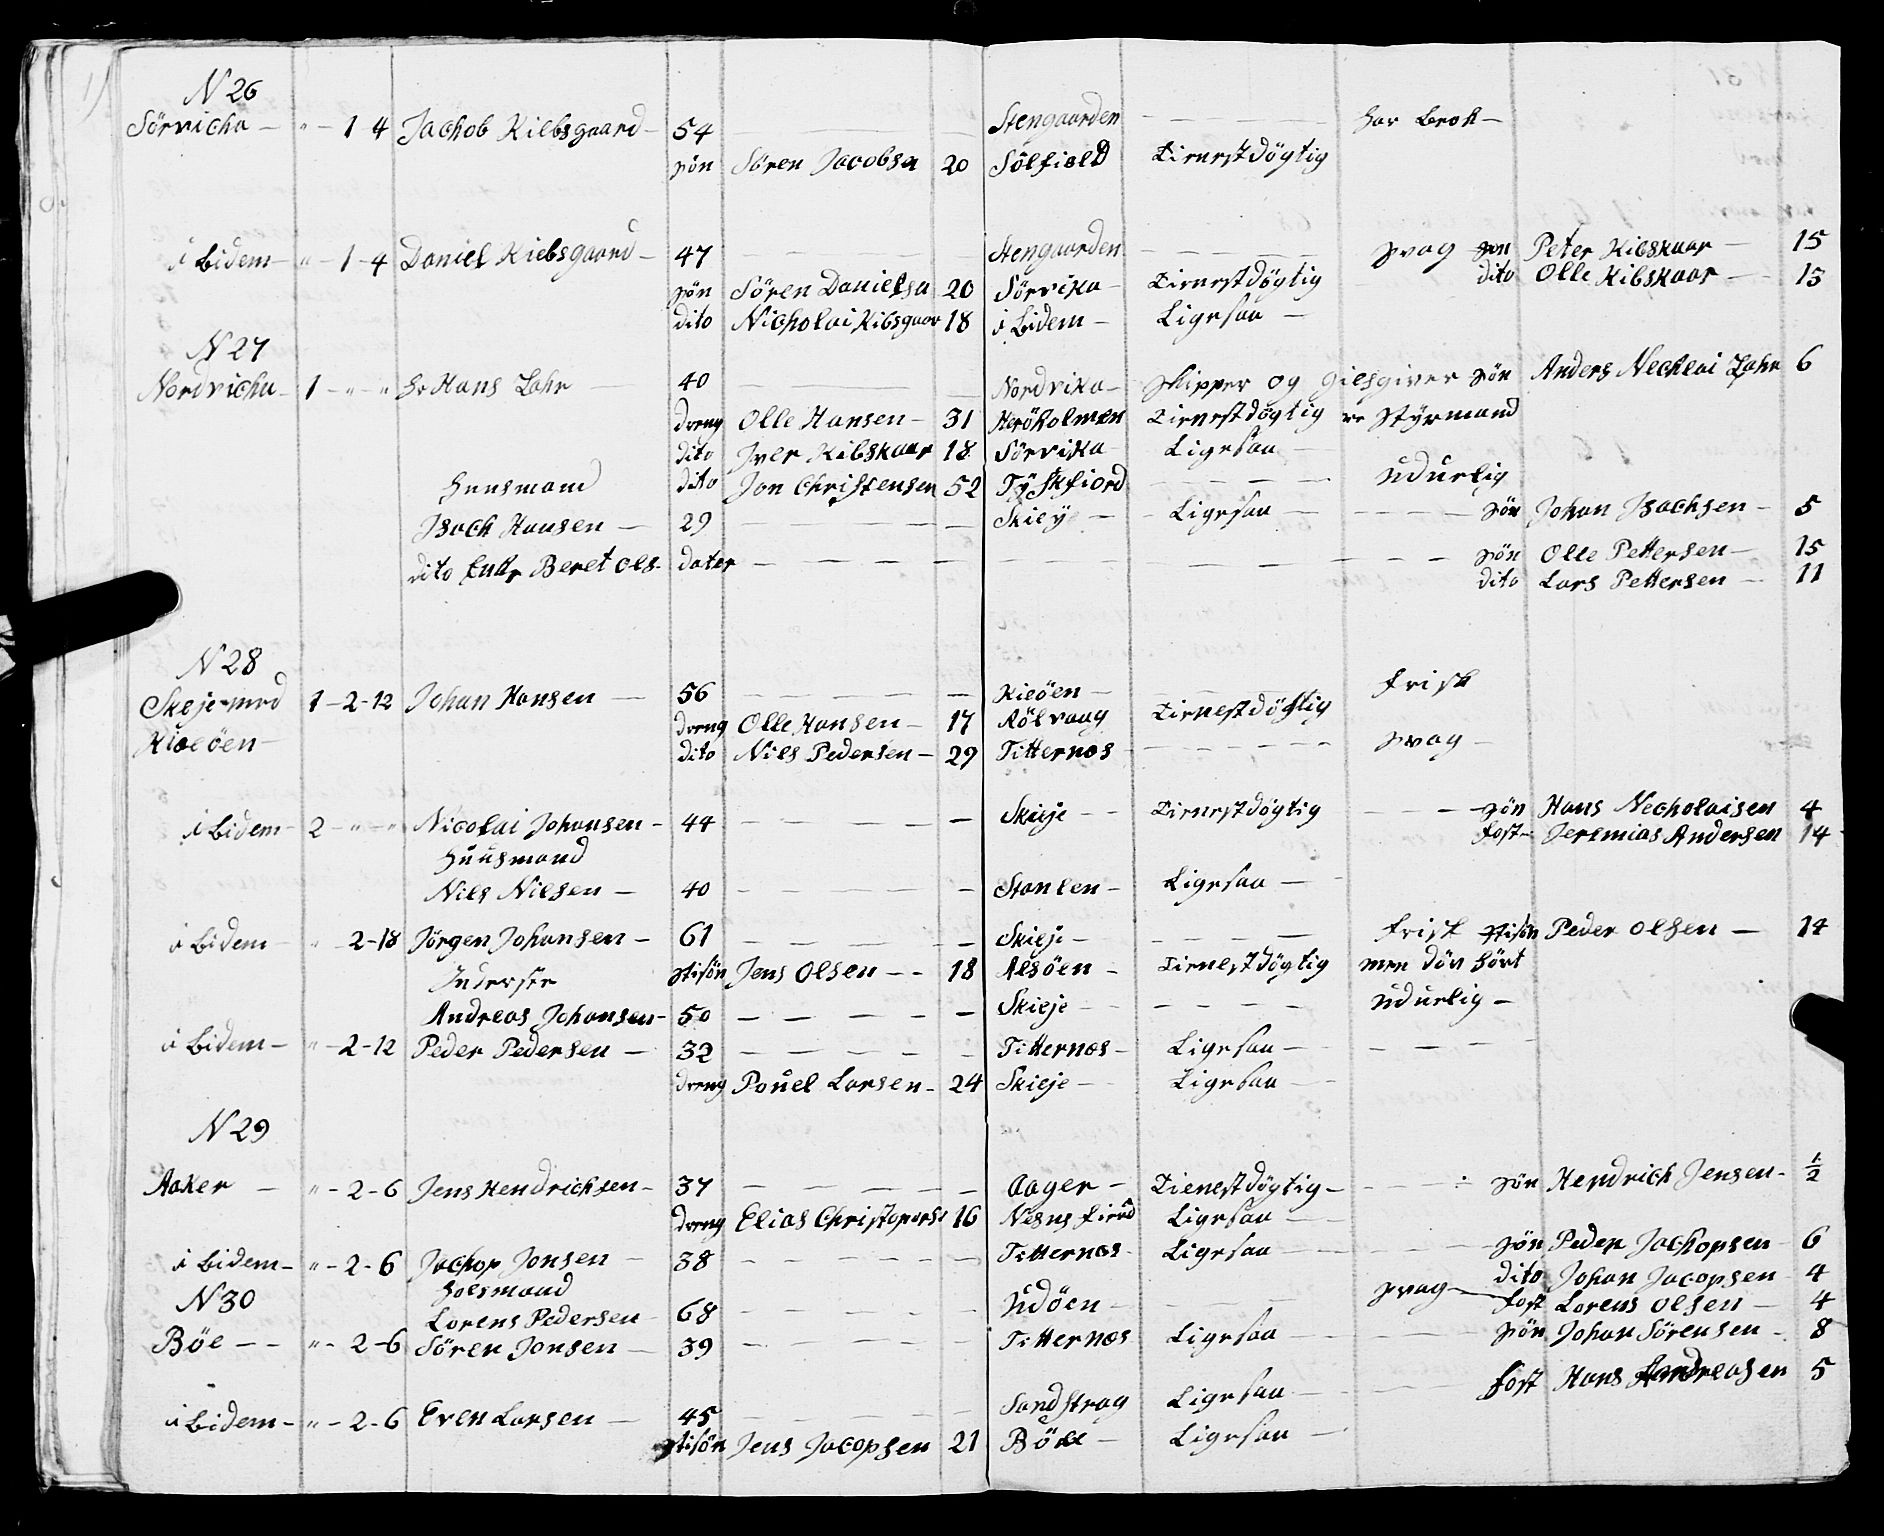 N 26
Sörvicha — " — 1 4 Jachob Kiebsgaard — 54 Stengaarden har brok —
søn Sören Jacobsa 20 Sölfield Tienestdögtig
i bidem — " — 1 — 4 Daniel Kiebsgaard — 47 Stengaarden svag søn Peter Kibskaar — 15
søn Sören Danielsa 20 Sörvika — Tienestdögtig dito Olle Kibskaar — 13
dito Nicholai Kibsgaar 18 i bidem — Ligesaa —
N 27
Nordvicha — 1 — " — " Hr Hans Lahr 40 Nordvika — Skipper og Giestgiver søn Anders Nechlai Lahr 6
dreng Olle Hansen — 31 Heröholmen Tienestdögtig er Styrmand
dito Iver Kibskaar 18 Sörvika — Ligesaa —
Huusmand dito Jon Christensen 52 Tyskfiord — — — udurlig
Isach Hansen — 29 — — — Skiey — Ligesaa — søn Johan Isachsen — 5
dito Enkr Beret Ols dater — — — søn Olle Pettersen — 15
dito Lars Pettersen — 11
N 28
Skeje med 1 — 2 - 12 Johan Hansen — 56 — — — Kieöen — Frisk
dreng Olle Hansen — 17 Rölvaag Tienestdögtig
Kiæöen — dito Nils Pedersen — 29 Titternes — — — svag —
i bidem — 2 — " — " Nicolai Johansen — 44 — — — Skieje — Tienestdögtig — — søn Hans Necholaisen 4
Huusmand fost — Jeremias Andersen 14
Nils Nilsen — 40 — — — Stanlen — Ligesaa —
i bidem — " 2 - 18 Jörgen Johansen — 61 — — — Skieje — — — Frisk stisön Peder Olsen — 14
Inderste stisön Jens Olsen — — 18 Alsöen — Tienestdögtig men döv hört
Andreas Johansen — 50 — — — Skieje — — — udurlig —
i bidem — " — 2 - 12 Peder Pedersen — 32 — — — Titternes — Ligesaa — — —
dreng Pouel Larsen — 24 Skieje — Ligesaa —
N 29
Aaker — " — 2 - 6 Jens Hendrichsen — 37 — — — Aager — Tienestdögtig — — søn Hendrich Jensen — 1/2
dreng Elias Christopers 16 Nesns fierd Ligesaa —
i bidem — " — 2 - 6 Jachop Jonsen — 38 — — — Titternes — Ligesaa — søn Peder Jachopsen 6
Hoesmand dito Johan Jacopsen 4
N 30
Lorens Pedersen 68 — — — Udöen — — svag — fost Lorens Olsen — 4
Böe — — " — 2 - 6 Sören Jonsen — 39 — — — Titternes Ligesaa — søn Johan Sörensen — 8
fost Hans Andreasen 5
i bidem — " — 2 - 6 Even Larsen — 45 — — — Sandstrag Ligesaa —
stisön Jens Jacopsen 21 Böe — Ligesaa —